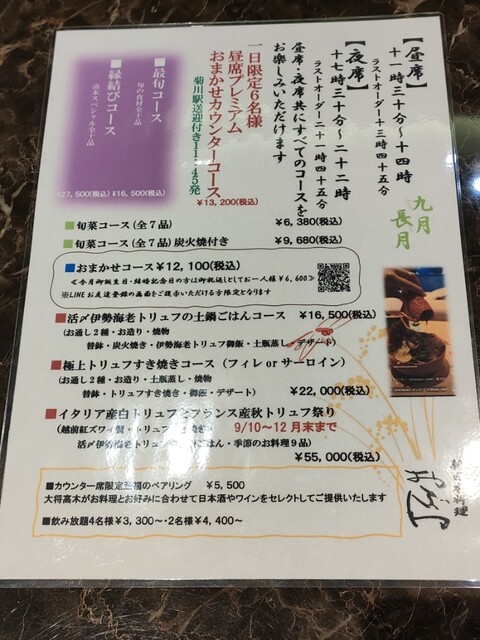 九月
長月
【昼席】
十一時三十分～十四時
ラストオーダー十三時四十五分
【夜席】
十七時三十分～二十二時
ラストオーダー二十一時四十五分
昼席・夜席共にすべてのコースを
お楽しみいただけます
一日限定6名様
昼席プレミアム
おまかせカウンターコース
菊川駅送迎付き11:45発
¥13,200(税込)
■最旬コース
旬の食材全十品
¥16,500(税込)
■縁結びコース
高木スペシャル全十品
¥27,500(税込)
■旬菜コース(全7品) ¥6,380(税込)
■旬菜コース(全7品)炭火焼付き ¥9,680(税込)
■おまかせコース¥12,100(税込)
≪今月御誕生日・結婚記念日の方は御祝返しとしてお一人様¥6,600≫
※LINEお友達登録の画面をご提示いただける方限定となります
■活〆伊勢海老トリュフの土鍋ごはんコース ¥16,500(税込)
(お通し2種・お造り・焼物
替鉢・炭火焼き・伊勢海老トリュフ御飯・土瓶蒸し・デザート)
■極上トリュフすき焼きコース(フィレorサーロイン)
(お通し2種・お造り・土瓶蒸し・焼物
替鉢・トリュフすき焼き・御飯・デザート) ¥22,000(税込)
■イタリア産白トリュフとフランス産秋トリュフ祭り
(越前紅ズワイ蟹・トリュフ 9/10～12月末まで
活〆伊勢海老トリュフ ごはん・季節のお料理9品)
¥55,000(税込)
■カウンター席限定至福のペアリング ¥5,500
大将高木がお料理とお好みに合わせて日本酒やワインをセレクトしてご提供いたします
■飲み放題4名様¥3,300～・2名様¥4,400～